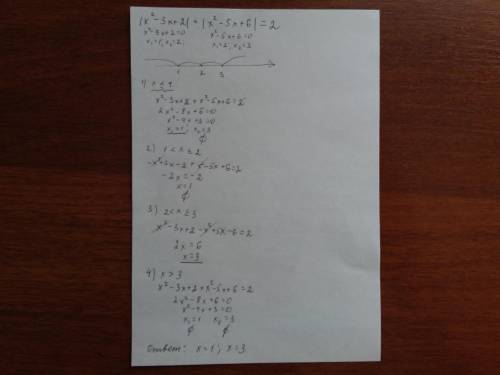 |x²-3x+2| + |x²-5x+6| = 2
x²-3x+2=0 x²-5x+6=0
x₁=1; x₂=2; x₁=2; x₂=3
1 2 3
1) x ≤ 1
x²-3x+2+x²-5x+6=2
2x²-8x+6=0
x²-4x+3=0
x₁=1; x₂=3
∅
2) 1 < x ≤ 2
-x²+3x-2+x²-5x+6=2
-2x=-2
x=1
∅
3) 2 < x ≤ 3
x²-3x+2-x²+5x-6=2
2x=6
x=3
4) x > 3
x²-3x+2+x²-5x+6=2
2x²-8x+6=0
x²-4x+3=0
x₁=1 x₂=3
∅ ∅
Ответ: x=1; x=3.